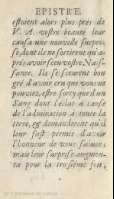 EPISTRE.
estoient alors plus pres de
V. A. vostre beauté leur
causa une nouvelle surprise
se, dont ils ne sortirent qu'a-
prés avoir sceu vostre Nais-
sance. Ils se sceurent bon
gré d'avoir creu que vous ne
pouviez estre sortie que d'un
Sang dont l'éclat a causé
de l'admiration à toute la
terre, & demanderent qu'il
leur fust permis d'avoir
l'honneur de vous saluer;
mais leur surprise augmen-
ta pour la troisième fois,